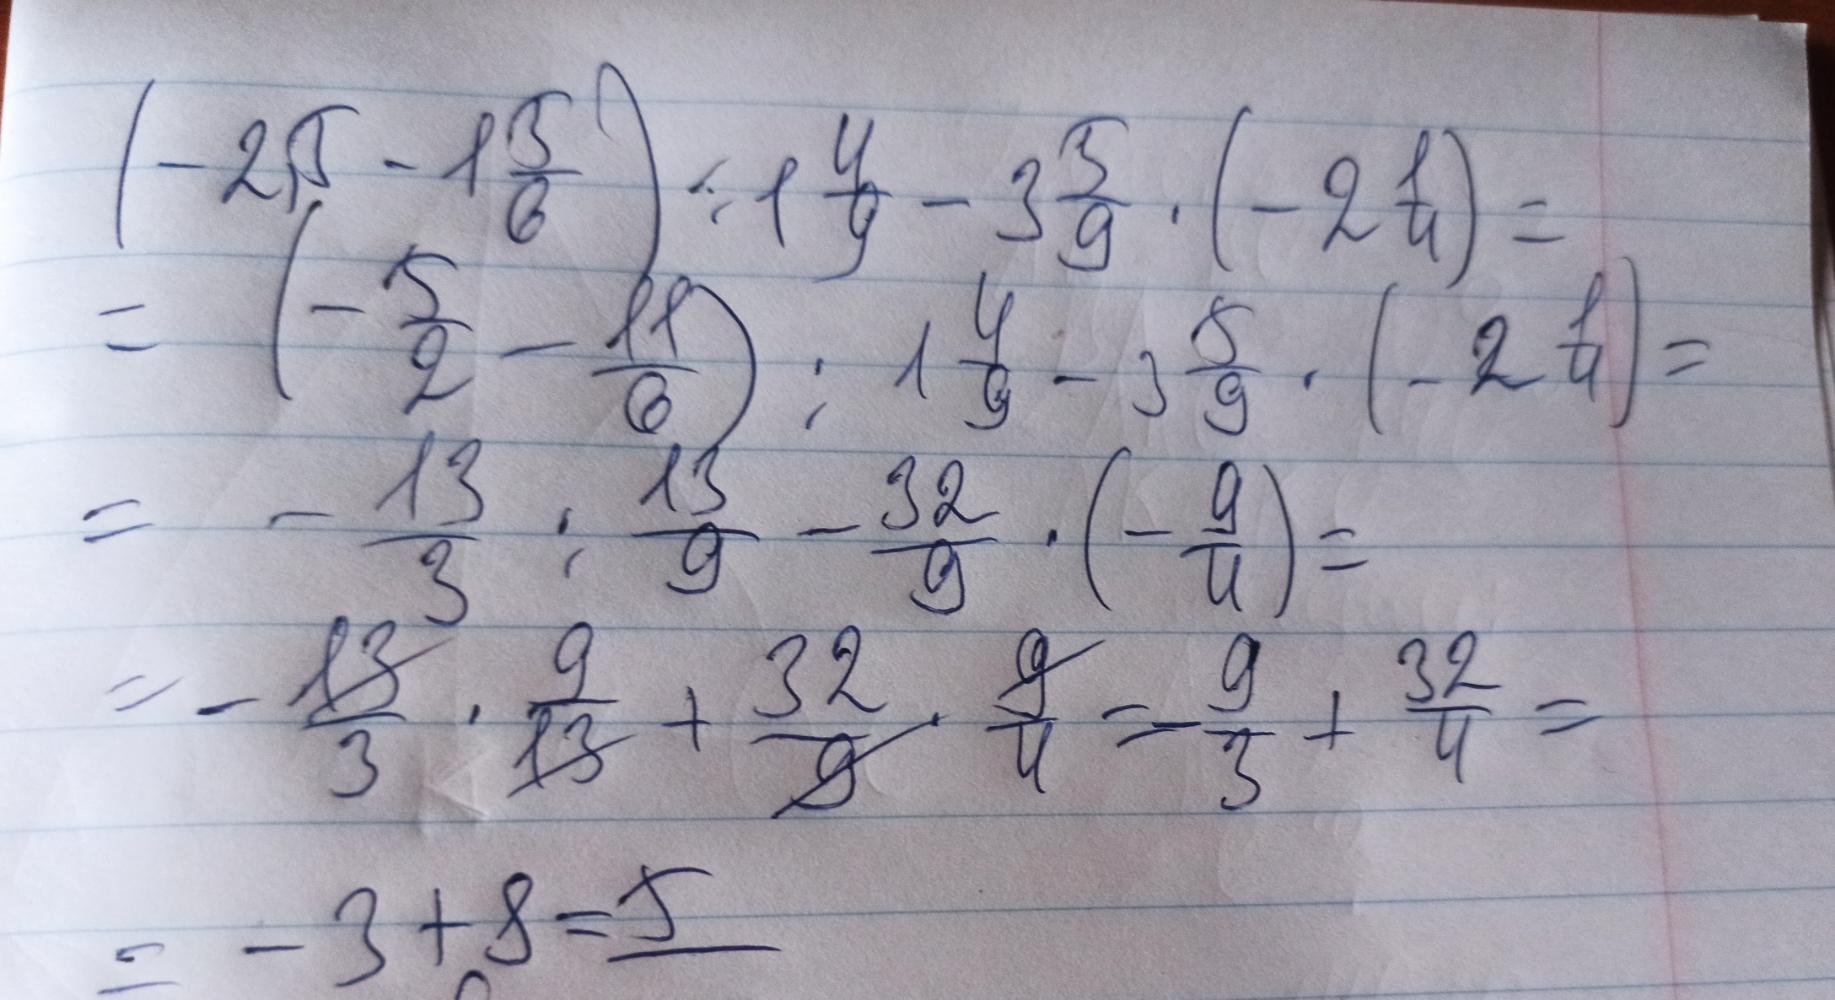 (-2,5 - 1 5/6) : 1 4/9 - 3 5/9 · (-2 1/4) =
= (-5/2 - 11/6) : 1 4/9 - 3 5/9 · (-2 1/4) =
= -13/3 : 13/9 - 32/9 · (-9/4) =
= -13/3 · 9/13 + 32/9 · 9/4 = -9/3 + 32/4 =
= -3 + 8 = 5